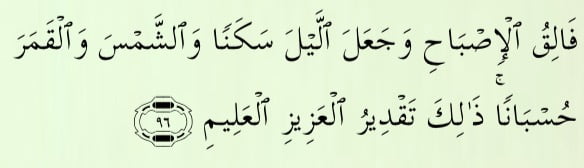 فَالِقُ ٱلْإِصْبَاحِ وَجَعَلَ ٱلَّيْلَ سَكَنًا وَٱلشَّمْسَ وَٱلْقَمَرَ
حُسْبَانًا ۚ ذَٰلِكَ تَقْدِيرُ ٱلْعَزِيزِ ٱلْعَلِيمِ ٩٦